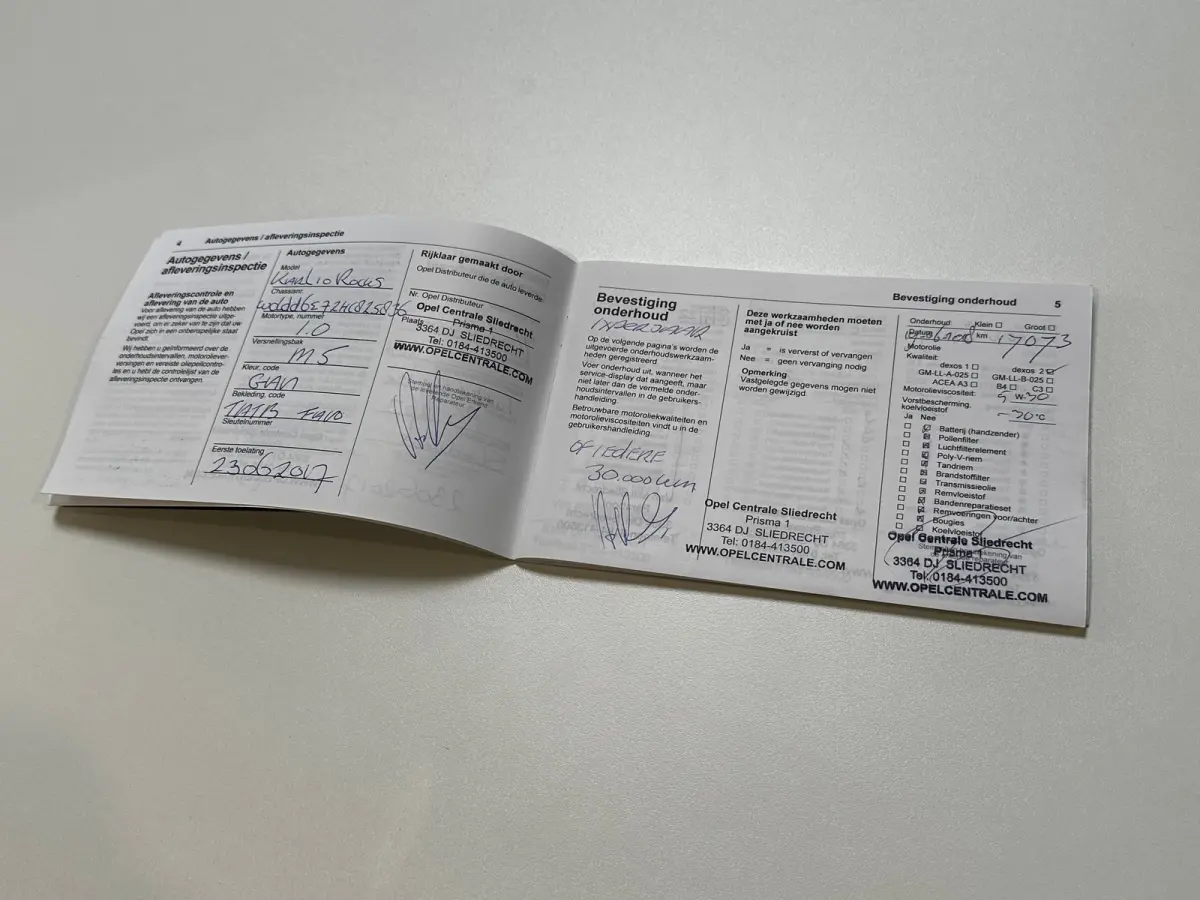 4 Autogegevens / afleveringsinspectie
Autogegevens /
afleveringsinspectie
Afleveringscontrole en
aflevering van de auto
Voor aflevering van de auto hebben
wij een afleveringsinspectie uitge-
voerd, om er zeker van te zijn dat uw
Opel zich in een onberispelijke staat
bevindt.
Wij hebben u geïnformeerd over de
onderhoudsintervallen, motorolie-
verversingen en vereiste oliepeilcontro-
les en u hebt de controlelijst van de
afleveringsinspectie ontvangen.
Autogegevens
Model
Karl io Rocks
Chassisnr.
Motortype, nummer
1.0
Versnellingsbak
M5
Kleur, code
GAN
Bekleding, code
Sleutelnummer
Eerste toelating
23062017
Rijklaar gemaakt door
Opel Distributeur die de auto leverde:
Nr. Opel Distributeur
Opel Centrale Sliedrecht
Plaats
Prisma 1
3364 DJ SLIEDRECHT
Tel: 0184-413500
WWW.OPELCENTRALE.COM
Stempel en handtekening van
Bevestiging onderhoud 5
Bevestiging
onderhoud
Op de volgende pagina's worden de
uitgevoerde onderhoudswerkzaam-
heden geregistreerd.
Voer onderhoud uit, wanneer het
service-display dat aangeeft, maar
niet later dan de vermelde onder-
houdsintervallen in de gebruikers-
handleiding.
Betrouwbare motoroliekwaliteiten en
motorolieviscositeiten vindt u in de
gebruikershandleiding.
OF IEDERE
30.000km
Deze werkzaamheden moeten
met ja of nee worden
aangekruist
Ja = is ververst of vervangen
Nee = geen vervanging nodig
Opmerking
Vastgelegde gegevens mogen niet
worden gewijzigd.
Opel Centrale Sliedrecht
Prisma 1
3364 DJ SLIEDRECHT
Tel: 0184-413500
WWW.OPELCENTRALE.COM
Onderhoud Klein Groot
Datum km 17073
Motorolie
Kwaliteit:
dexos 1 dexos 2
GM-LL-A-025 GM-LL-B-025
ACEA A3 B4 C3
Motorolieviscositeit: 5W30
Vorstbescherming,
koelvloeistof -30°C
Ja Nee
Batterij (handzender)
Pollenfilter
Luchtfilterelement
Poly-V-riem
Tandriem
Brandstoffilter
Transmissieolie
Remvloeistof
Bandenreparatieset
Remvoeringen voor/achter
Bougies
Koelvloeistof
Opel Centrale Sliedrecht
Prisma 1
3364 DJ SLIEDRECHT
Tel: 0184-413500
WWW.OPELCENTRALE.COM